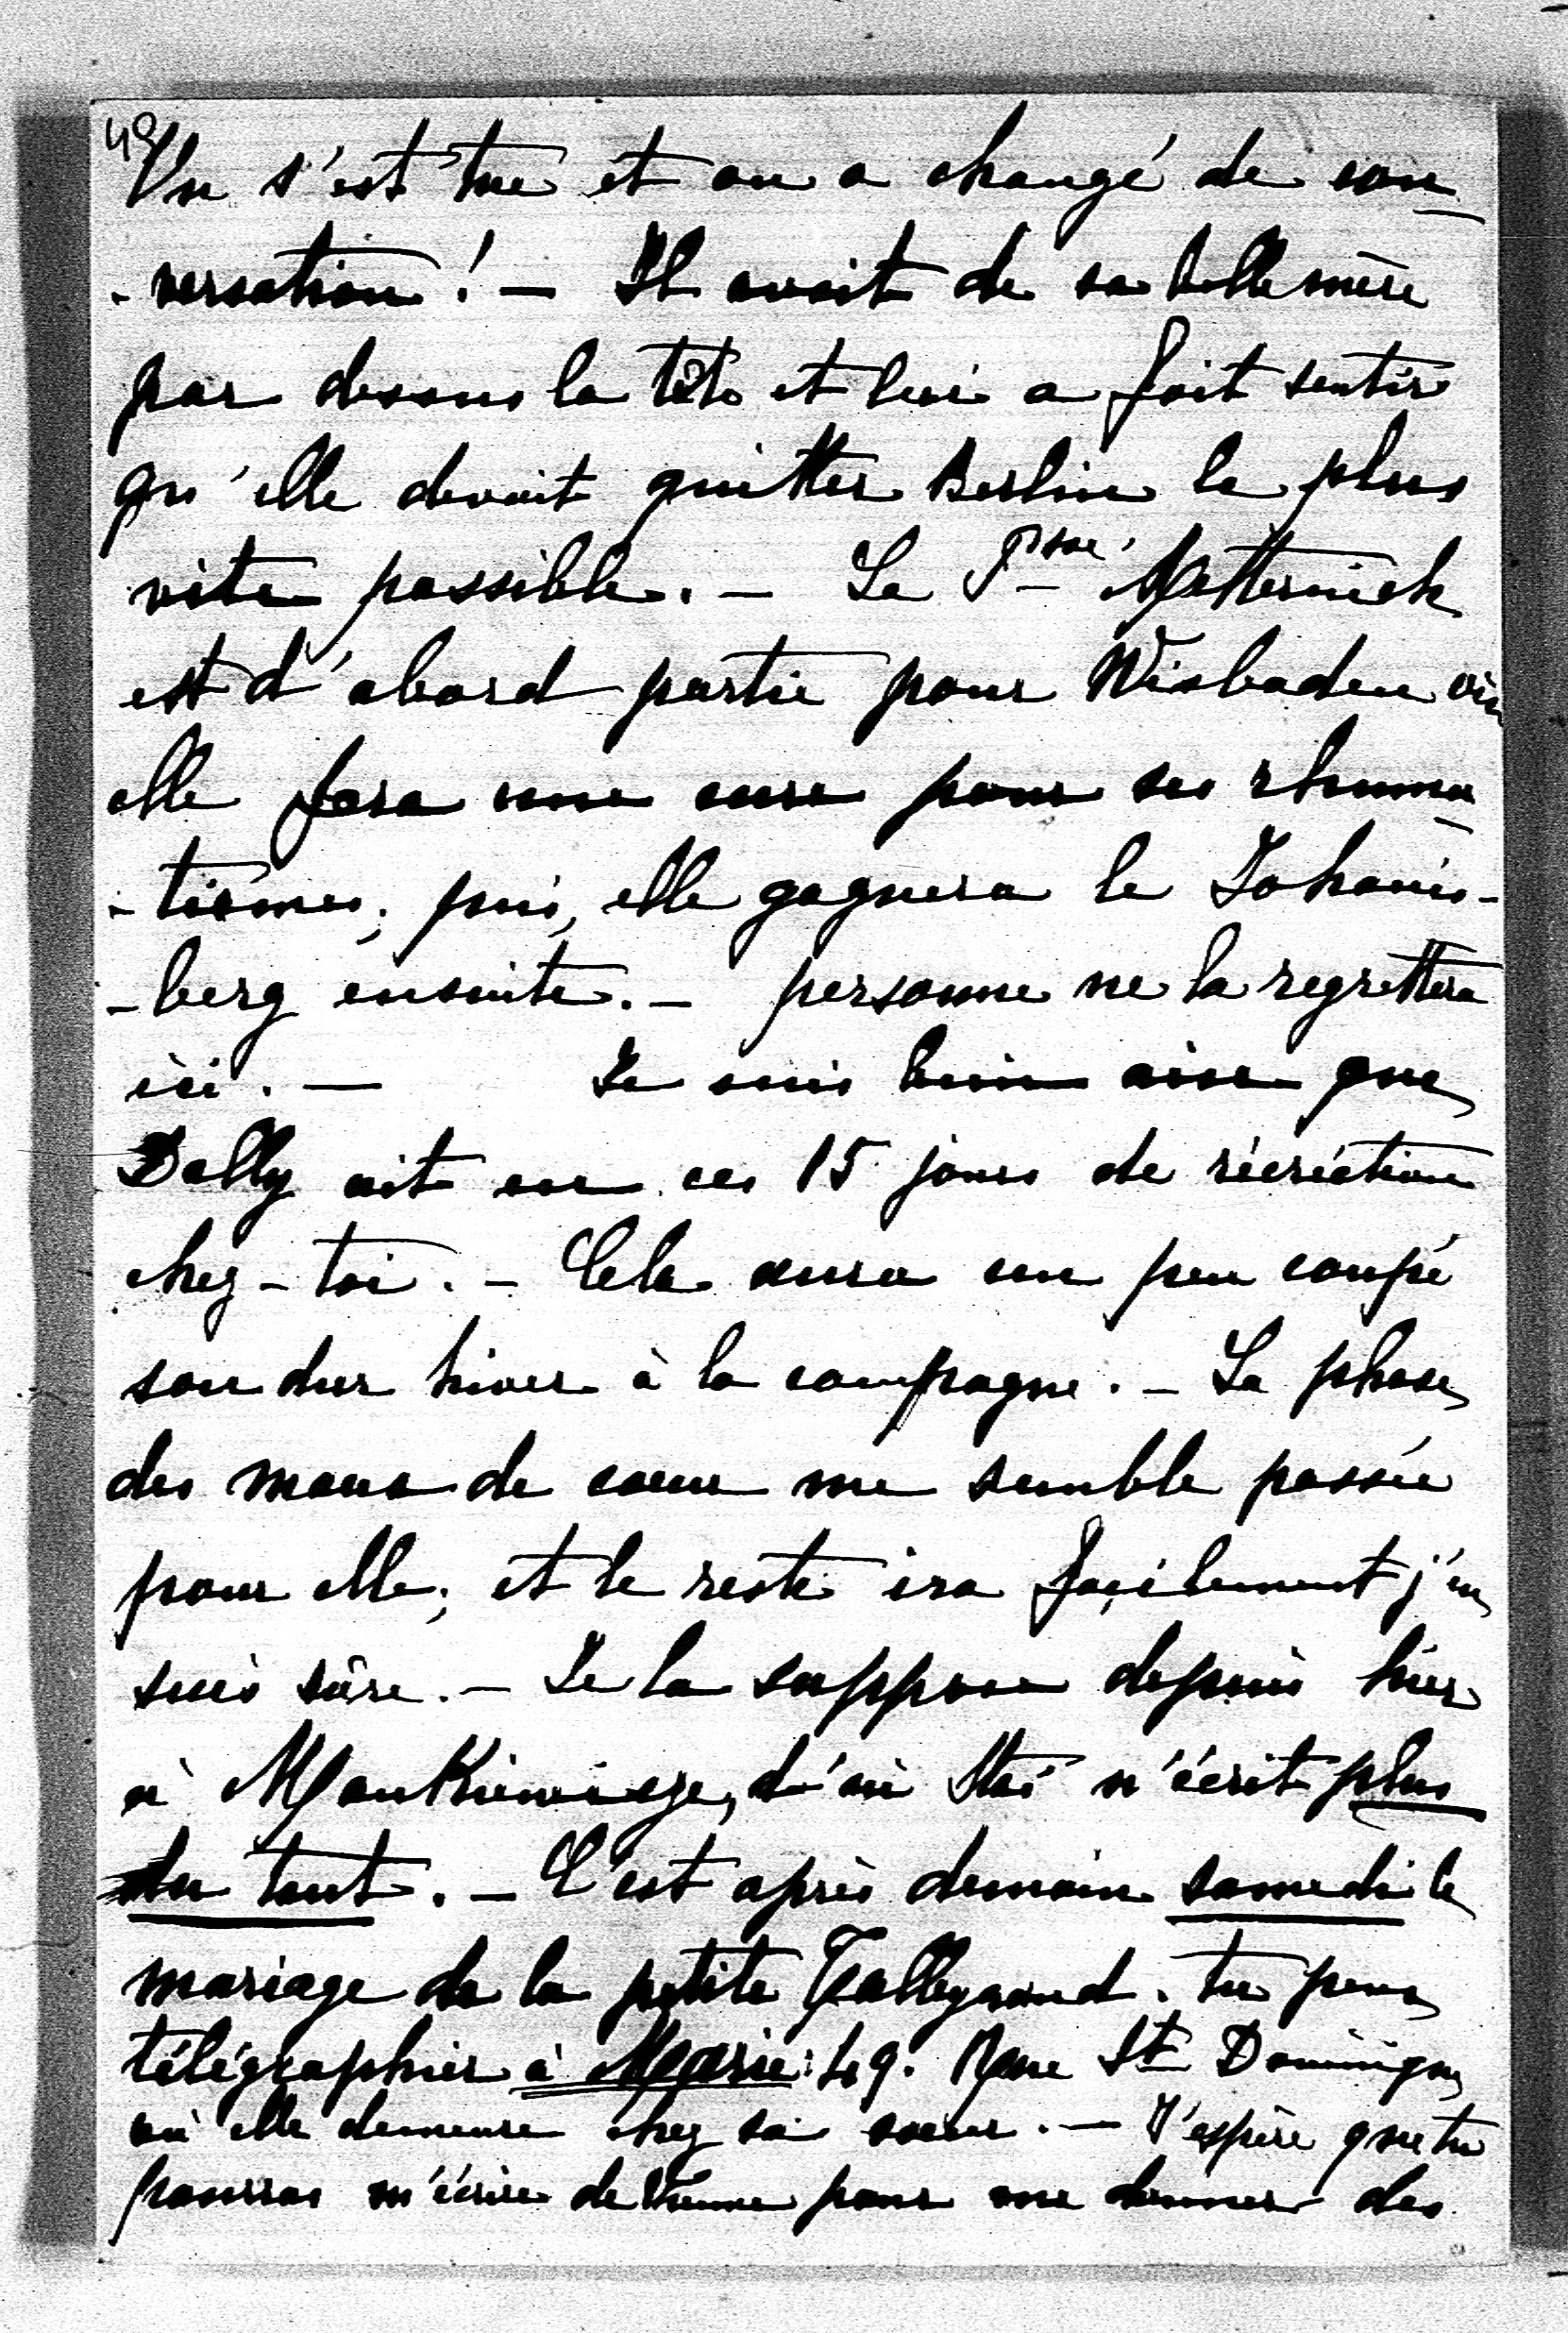 49
On s'est tue et on a changé de con
-versation ! — Il avait de sa belle mère
par dessus la tête et lui a fait sentir
qu'elle devait quitter Berlin le plus
vite possible. — La Psse Metternich
est d'abord partie pour Wisbaden où
elle fera une cure pour ses rhuma
-tismes ; puis, elle gagnera le Johanis-
-berg ensuite. — personne ne la regrettera
ici. — Je suis bien aise que
Dolly ait eu ces 15 jours de récréation
chez-toi. — Cela aura un peu coupé
son dur hiver à la campagne. — La phase
des maux de cœur me semble passée
pour elle ; et le reste ira façilement j'en
suis sûre. — Je la suppose depuis hier
à Mankiewicze, d'où Stas n'écrit plus
du tout. — C'est après demain samedi le
mariage de la petite Talleyrand. tu peux
télégraphier à Marie : 49. Rue St Dominique
où elle demeure chez sa sœur. — J'espère que tu
pourras m'écrire de Vienne pour me donner des